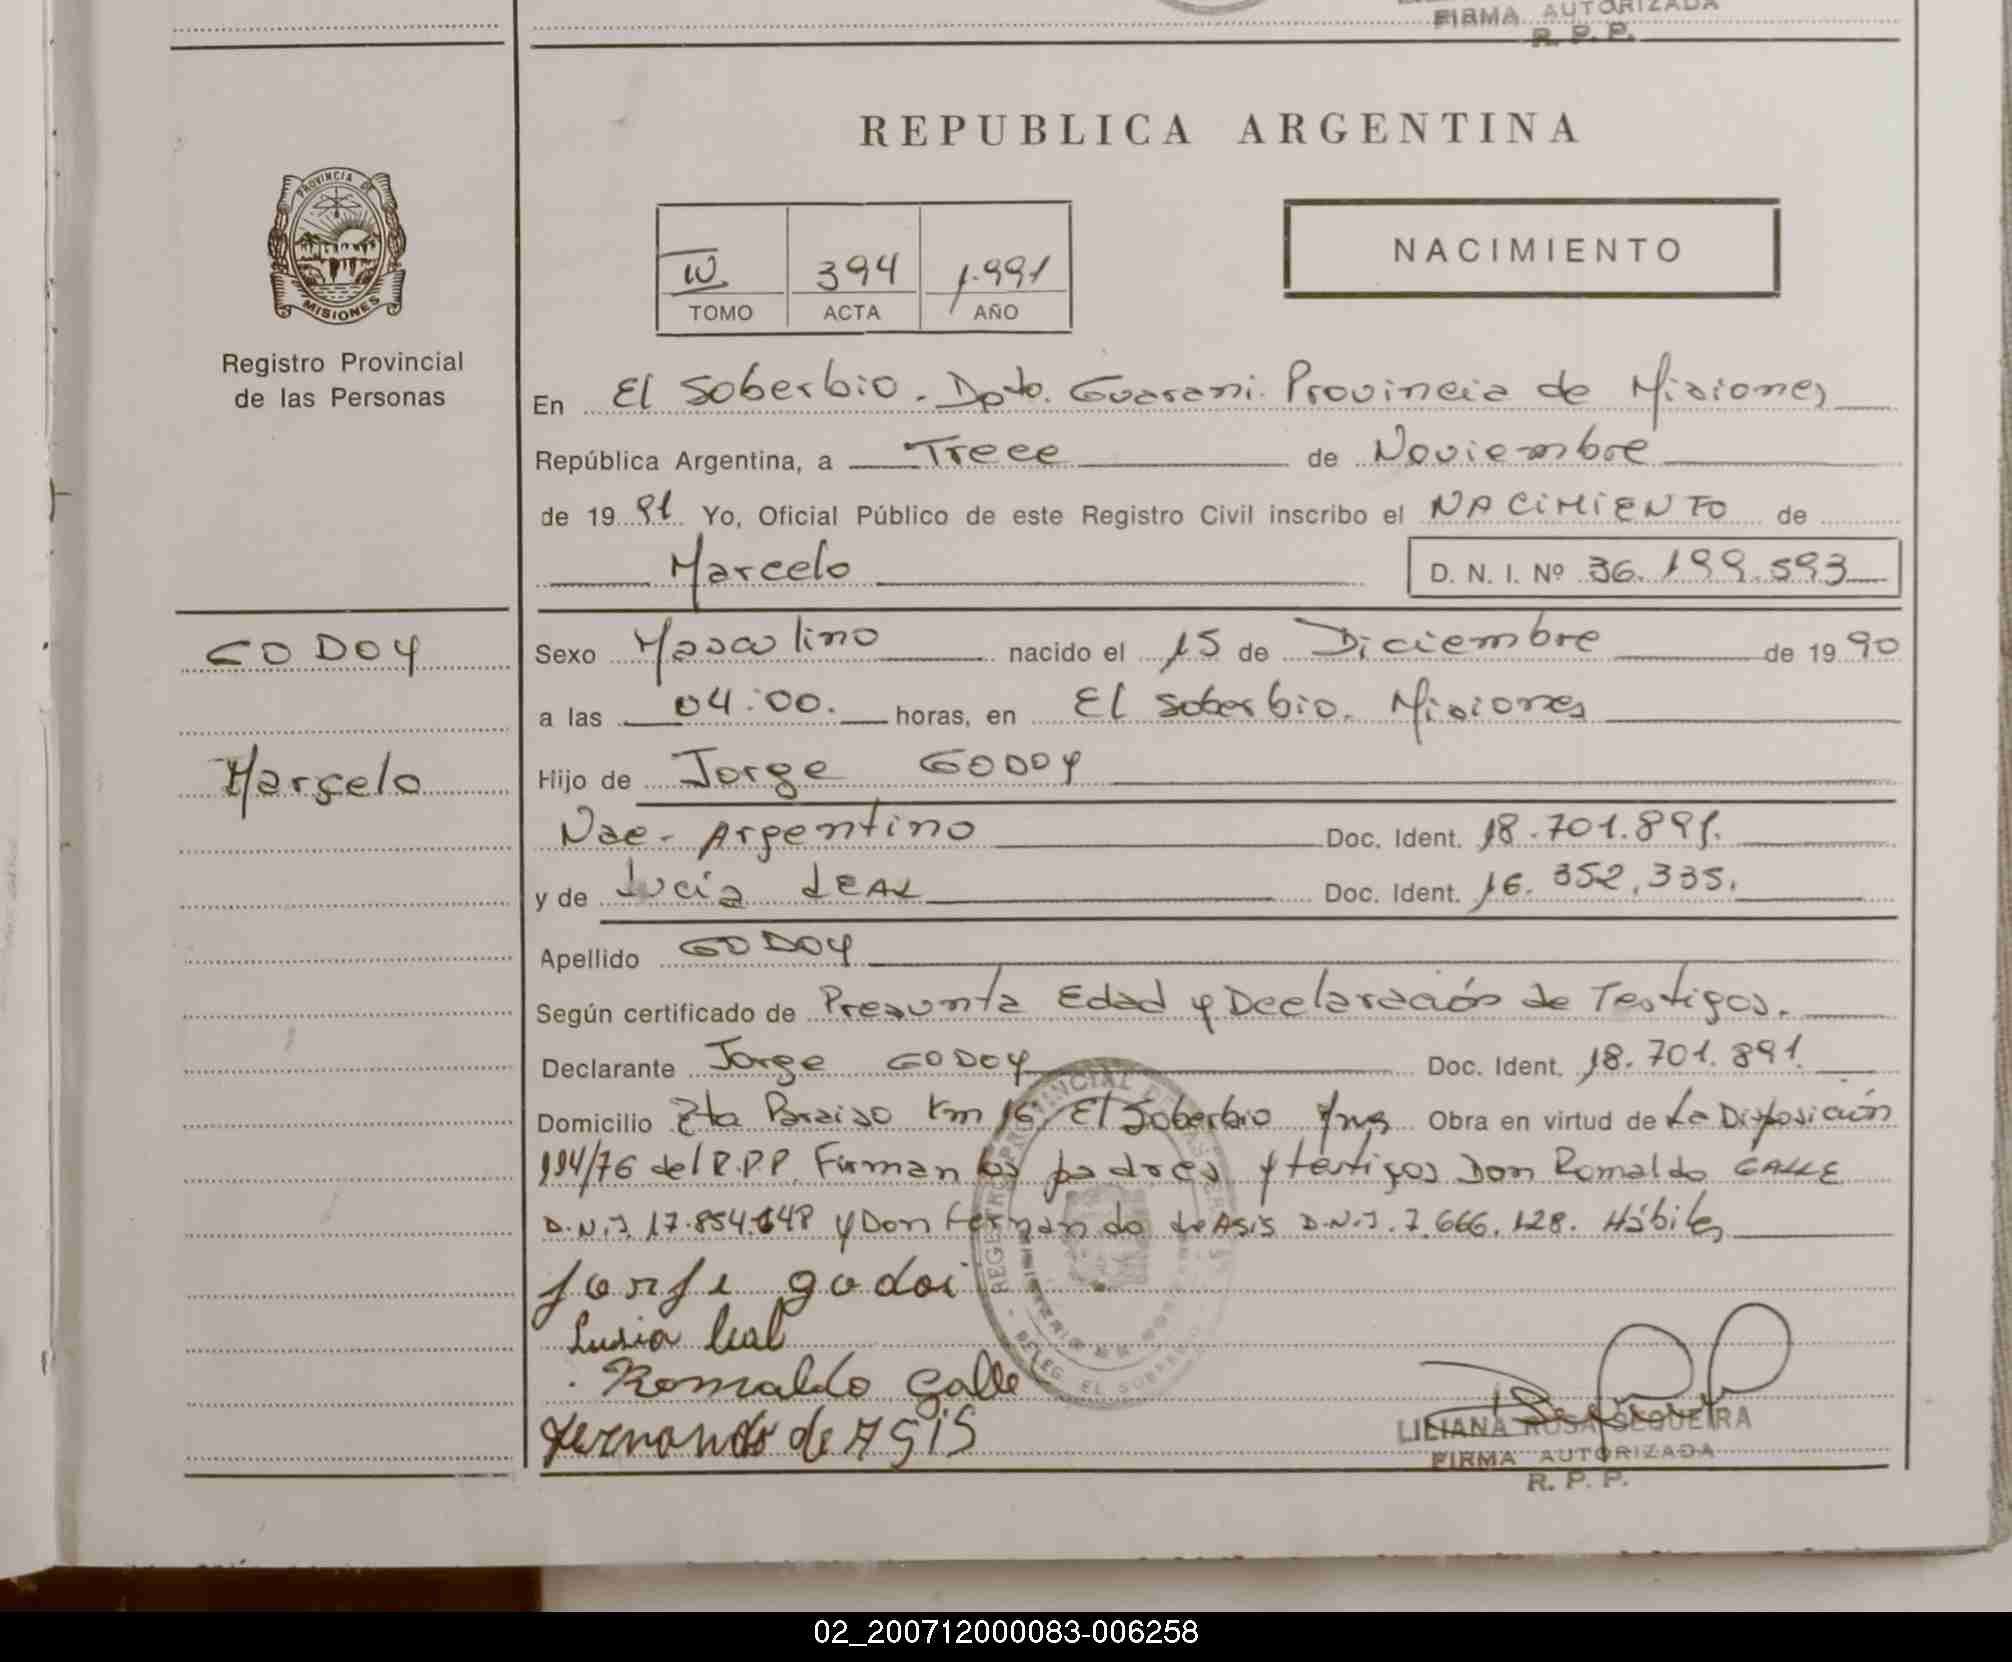 FIRMA AUTORIZADA
R. P. P.
PROVINCIA DE
MISIONES
Registro Provincial
de las Personas
REPUBLICA ARGENTINA
394 1.991
TOMO ACTA AÑO
NACIMIENTO
En El Soberbio. Dpto. Guarani. Provincia de Misiones
República Argentina, a Trece de Noviembre
de 19 91 Yo, Oficial Público de este Registro Civil inscribo el NACIMIENTO de
Marcelo D. N. I. Nº 36.199.593
GODOY
Marcelo
Sexo Masculino nacido el 15 de Diciembre de 19 90
a las 04:00. horas, en El Soberbio. Misiones
Hijo de Jorge GODOY
Nac. Argentino Doc. Ident. 18.701.891.
y de Lucia LEAL Doc. Ident. 16.352.335.
Apellido GODOY
Según certificado de Presunta Edad y Declaración de Testigos.
Declarante Jorge GODOY Doc. Ident. 18.701.891.
Domicilio Paraiso Km 16. El Soberbio Obra en virtud de La Disposición
194/76 del R.P.P. Firman los padres y testigos Don Romaldo GALLE
D.N.I. 17.854.648 y Don Fernando de Asis D.N.I. 7.666.128. Hábiles
jorge godoi
Lusia leal
Romaldo Galle
Fernando de ASIS
LILIANA ROSA SEQUEIRA
FIRMA AUTORIZADA
R. P. P.
02_200712000083-006258